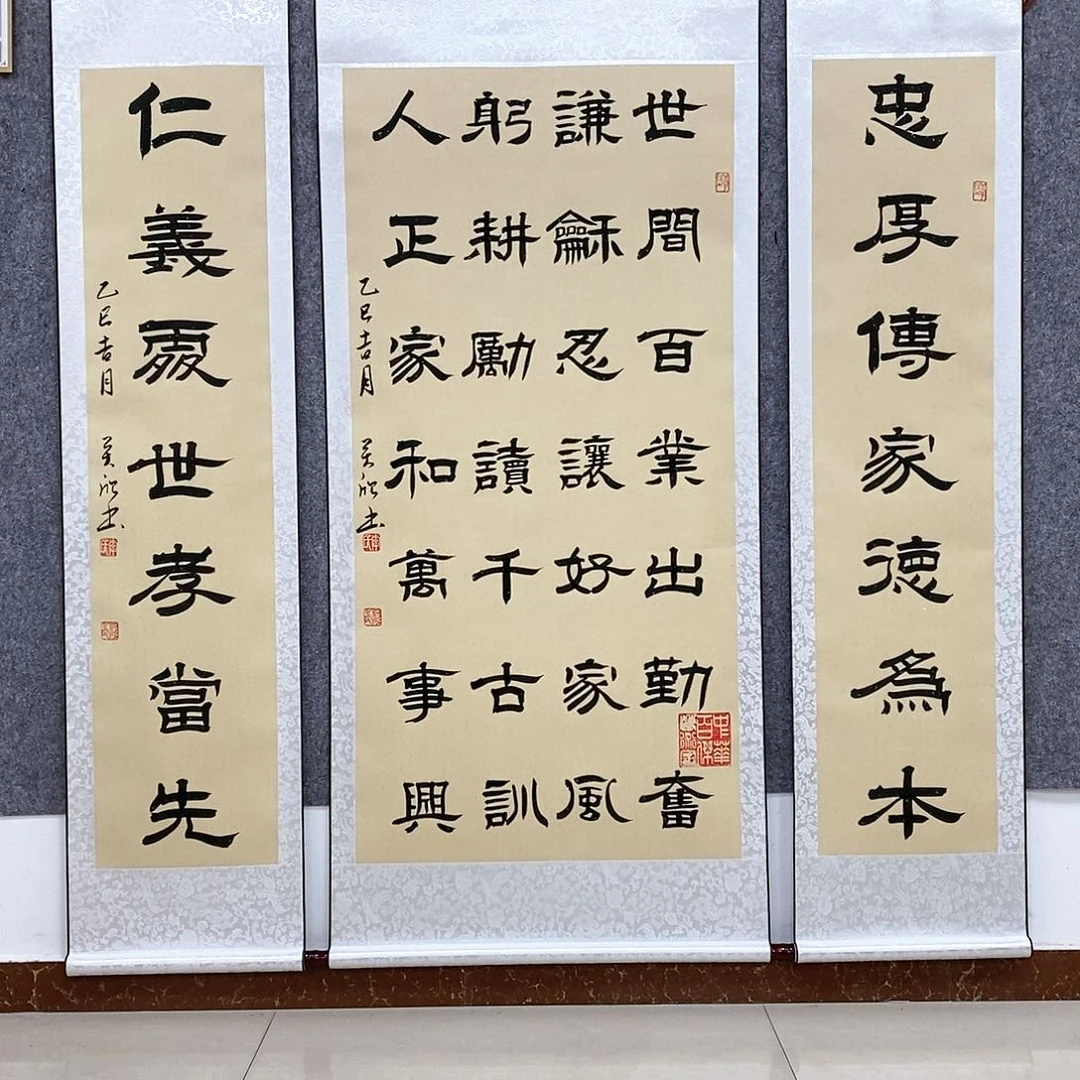 忠厚傳家德爲本
世間百業出勤奮
謙龢忍讓好家風
躬耕勵讀千古訓
人正家和萬事興
乙巳吉月
中華百傑
仁義處世孝當先
乙巳吉月